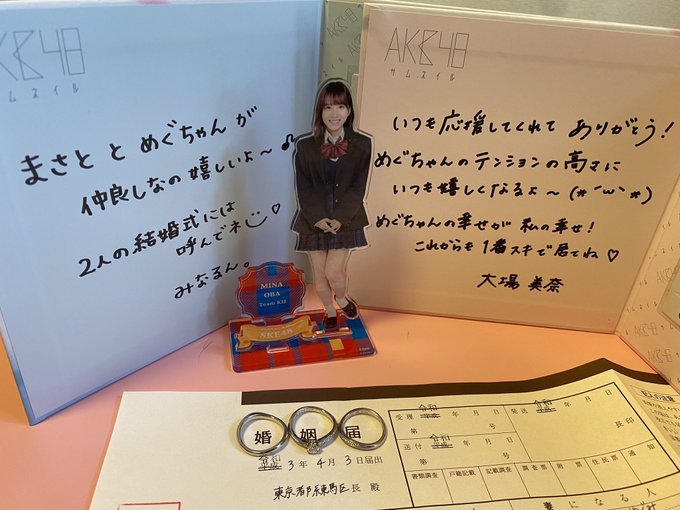 AKB48
サムネイル
まさと と めぐちゃん が
仲良しなの 嬉しいよ〜♪
2人の結婚式には
呼んでネ♡
みなるん。
AKB48
サムネイル
いつも応援してくれて ありがとう!
めぐちゃんのテンションの高さに
いつも嬉しくなるよ〜(*´ω`*)
めぐちゃんの幸せが 私の幸せ!
これからも 1番スキで居てね♡
大場 美奈
MINA
OBA
Team KII
SKE48
婚姻届
令和
平成 3年4月3日届出
東京都練馬区長 殿
受理 令和 平成 年 月 日
第 号
発送 令和 平成 年 月 日
送付 令和 平成 年 月 日
第 号
長印
書類調査 戸籍記載 記載調査 調査票 附票 住民票 通知
妻になる人